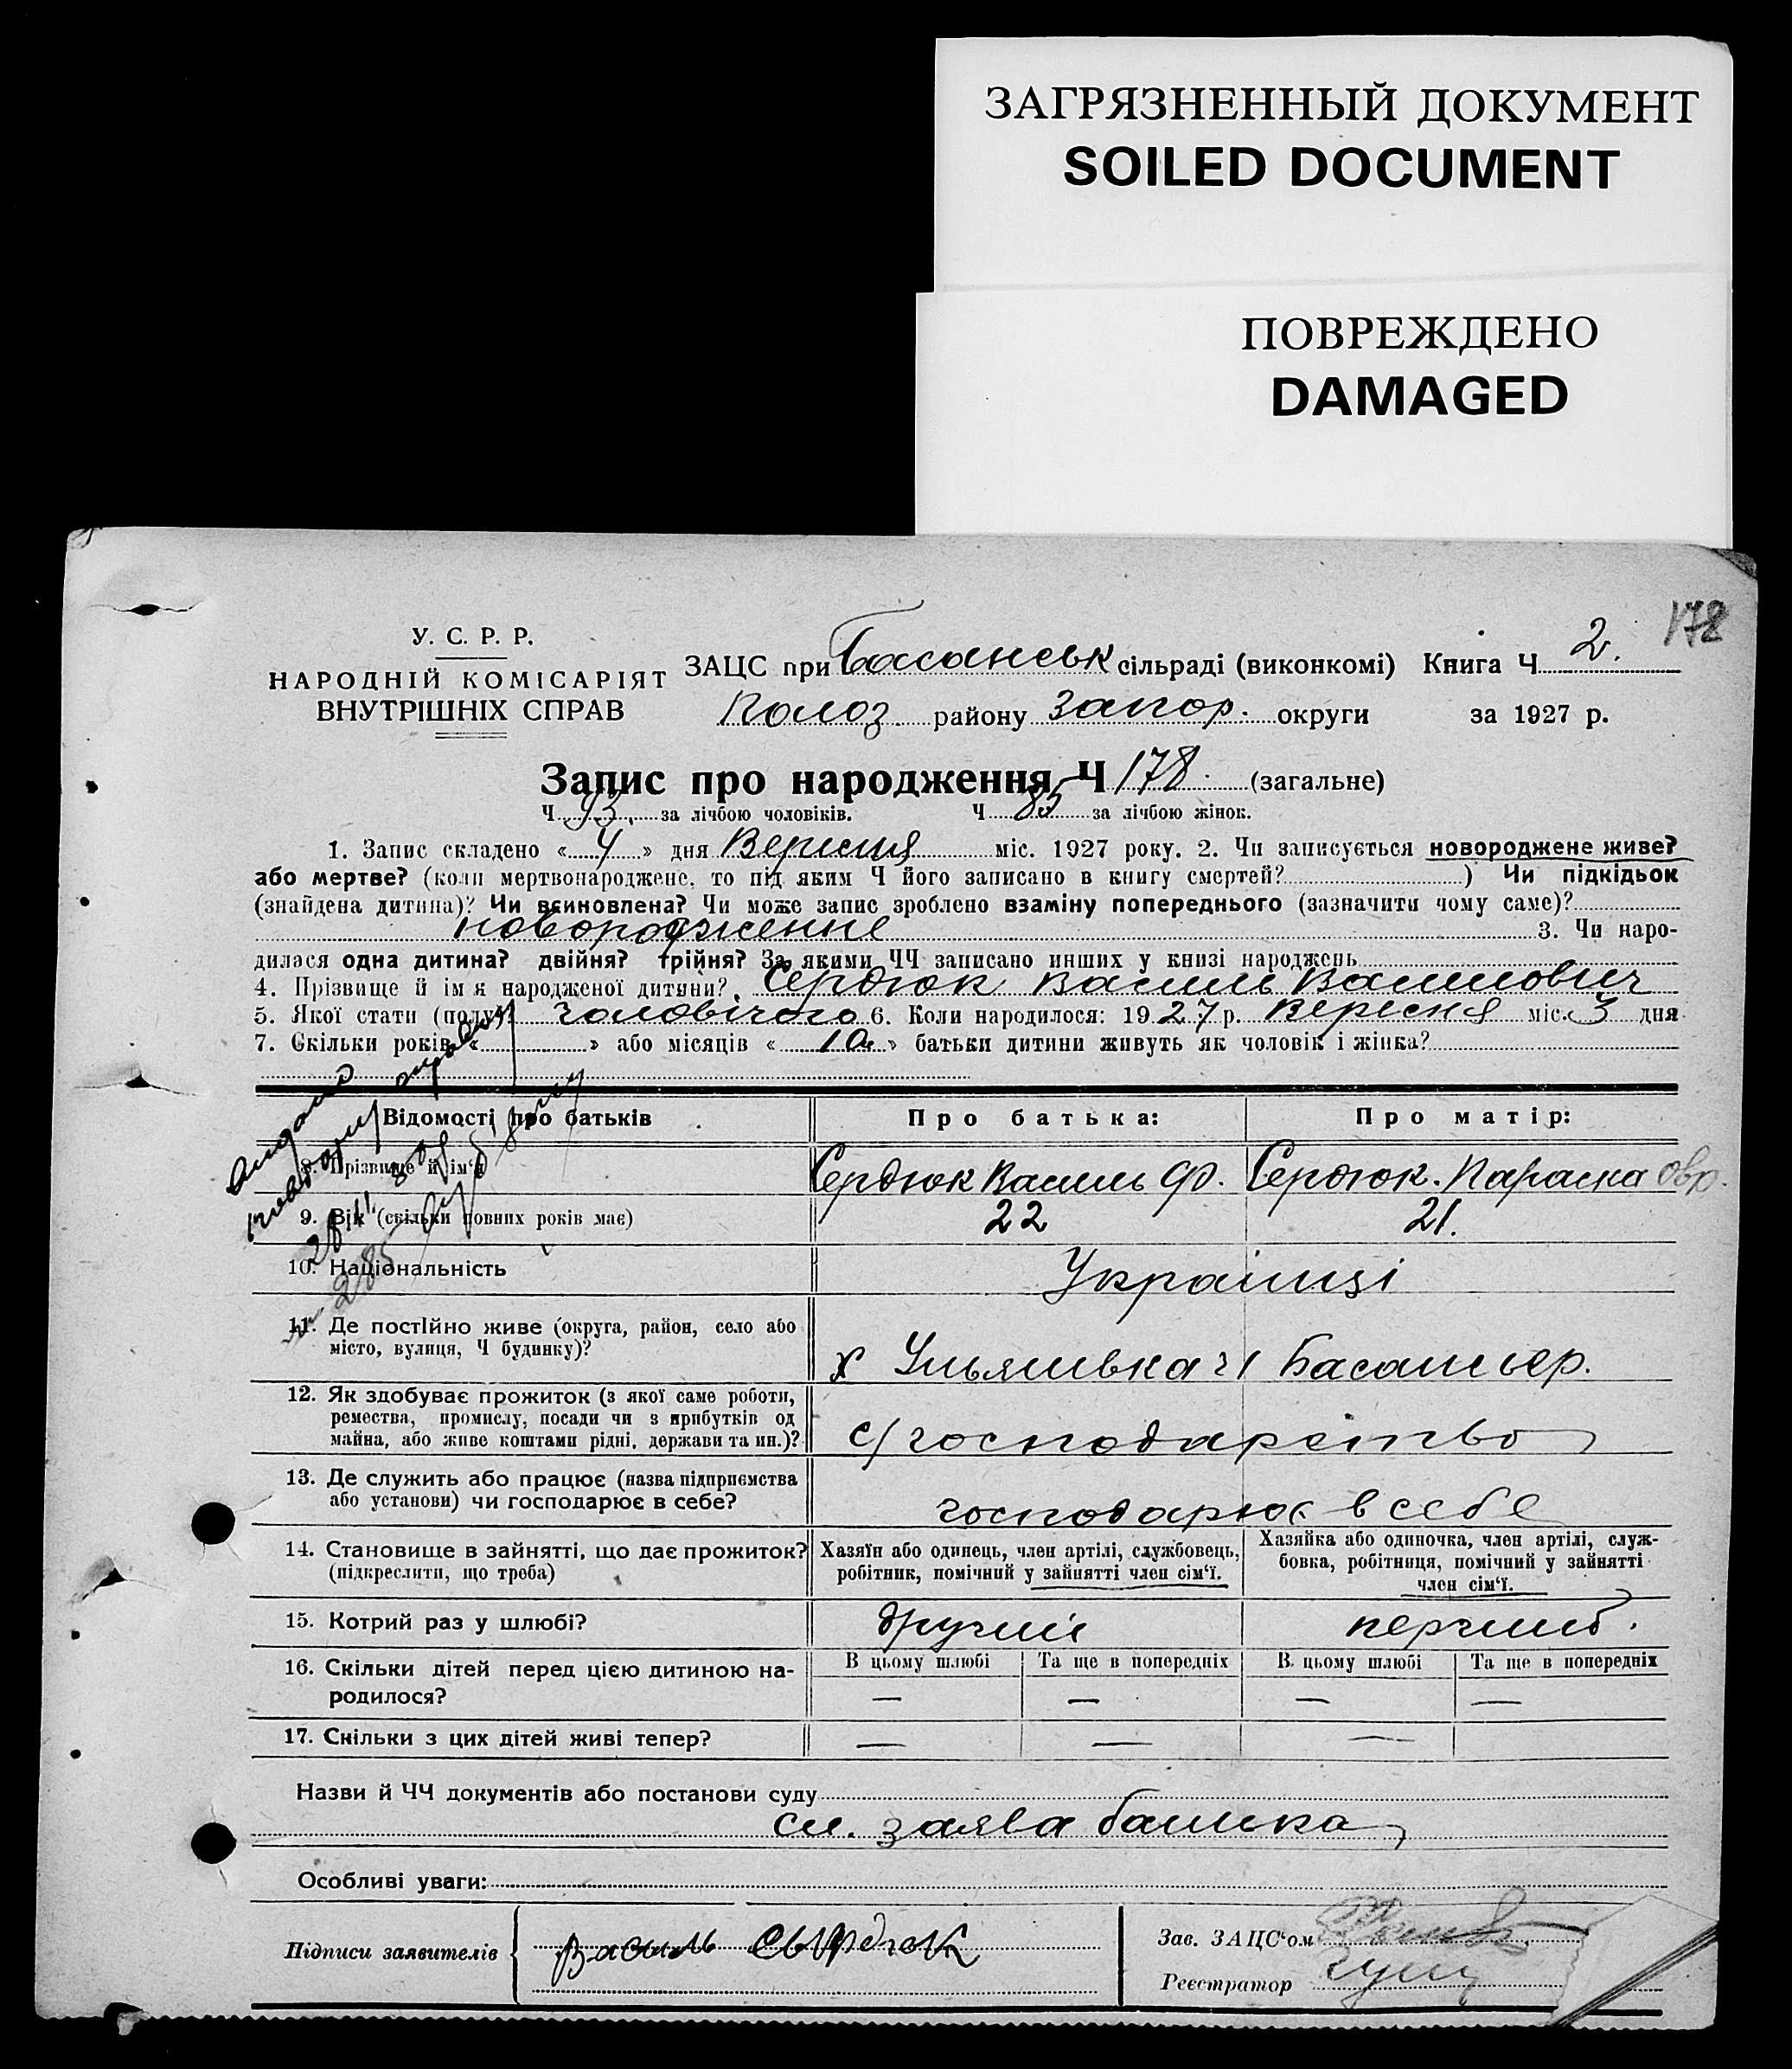 ЗАГРЯЗНЕННЫЙ ДОКУМЕНТ
SOILED DOCUMENT
ПОВРЕЖДЕНО
DAMAGED
178
У. С. Р. Р.
НАРОДНІЙ КОМІСАРІЯТ
ВНУТРІШНІХ СПРАВ
ЗАЦС при Басанськ сільраді (виконкомі) Книга Ч 2.
Полоз районy Запор. округи за 1927 р.
Запис про народження Ч 178. (загальне)
Ч 93. за лічбою чоловіків. Ч 85 за лічбою жінок.
1. Запис складено «4» дня Вересня міс. 1927 року. 2. Чи записується новороджене живе?
або мертве? (коли мертвонароджене, то під яким Ч його записано в книгу смертей?) Чи підкідьок
(знайдена дитина)? Чи всиновлена? Чи може запис зроблено взаміну попереднього (зазначити чому саме)?
новородженне 3. Чи наро-
дилася одна дитина? двійня? трійня? За якими ЧЧ записано инших у книзі народжень
4. Прізвище й ім'я народженої дитини? Сердюк Василь Василович
5. Якої стати (полу)? чоловічого 6. Коли народилося: 1927 р. Вересня міс. 3 дня
7. Скільки років « » або місяців « » батьки дитини живуть як чоловік і жінка?
Відомості про батьків
Про батька:
Про матір:
8. Прізвище й ім'я Сердюк Василь Ф. Сердюк. Параска Овр.
9. Вік (скільки повних років має) 22 21.
10. Національність Українці
11. Де постійно живе (округа, район, село або
місто, вулиця, Ч будинку)?
х Ульянивка
12. Як здобуває прожиток (з якої саме роботи,
ремества, промислу, посади чи з прибутків од
майна, або живе коштами рідні, держави та ин.)?
с/господарство
13. Де служить або працює (назва підприємства
або установи) чи господарює в себе?
господарює в себе
14. Становище в зайнятті, що дає прожиток?
(підкреслити, що треба)
Хазяїн або одинець, член артілі, службовець,
робітник, помічний у зайнятті член сім'ї.
Хазяйка або одиночка, член артілі, служ-
бовка, робітниця, помічний у зайнятті
член сім'ї.
15. Котрий раз у шлюбі? другий перший.
16. Скільки дітей перед цією дитиною на-
родилося?
В цьому шлюбі Та ще в попередніх В цьому шлюбі Та ще в попередніх
— — — —
17. Скільки з цих дітей живі тепер? — — —
Назви й ЧЧ документів або постанови суду
сл. заява батька
Особливі уваги:
Підписи заявителів Василь Сырдюк
Зав. ЗАЦС'ом
Реєстратор